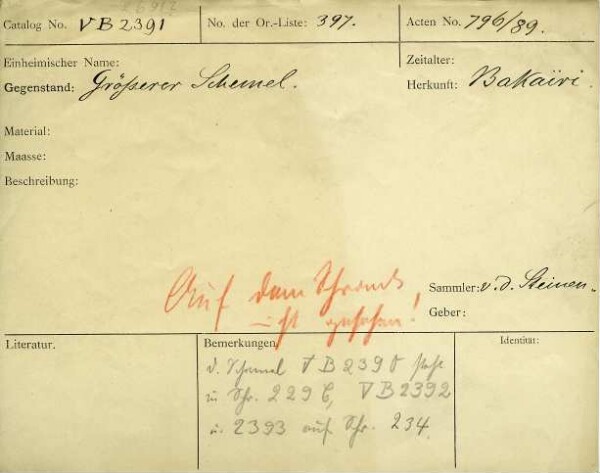 Catalog No. VB2391
No. der Or.-Liste: 397.
Acten No. 796/89.
Einheimischer Name:
Gegenstand: Größerer Schemel.
Zeitalter:
Herkunft: Bakaïri.
Material:
Maasse:
Beschreibung:
Auf dem Schrank
gesehen!
Sammler: v. d. Steinen.
Geber:
Literatur.
Bemerkungen
d. Schemel VB2390 steht
in Schr. 229 b, VB2392
u. 2393 auf Schr. 234.
Identität: